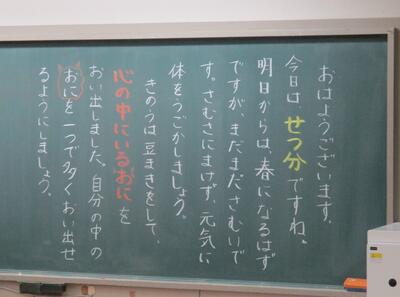 おはようございます。
今日は、せつ分ですね。
明日からは、春になるはず
ですが、まだまださむいで
す。さむさにまけず、元気に
体をうごかしましょう。
きのうは豆まきをして、
心の中にいるおにを
おい出しました。自分の中の
おにを一つでも多くおい出せ
るようにしましょう。